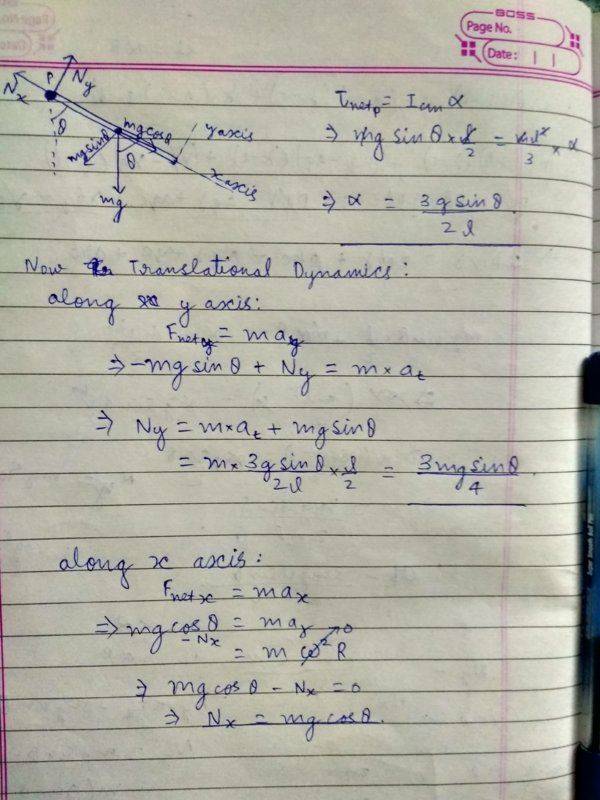 BOSS
Page No.
Date:
Nx
P
Ny
θ
mg sinθ
mg cosθ
θ
y axis
x axis
mg
τnet p = Icm α
⇒ mg sin θ × l/2 = ml²/3 × α
⇒ α = 3g sinθ / 2l
Now Translational Dynamics:
along y axis:
Fnet y = m ay
⇒ -mg sin θ + Ny = m × at
⇒ Ny = m × at + mg sinθ
= m × 3g sinθ/2l × l/2 = 3mg sinθ/4
along x axis:
Fnet x = m ax
⇒ mg cos θ - Nx = m ar
= m ω² R → 0
⇒ mg cos θ - Nx = 0
⇒ Nx = mg cos θ.